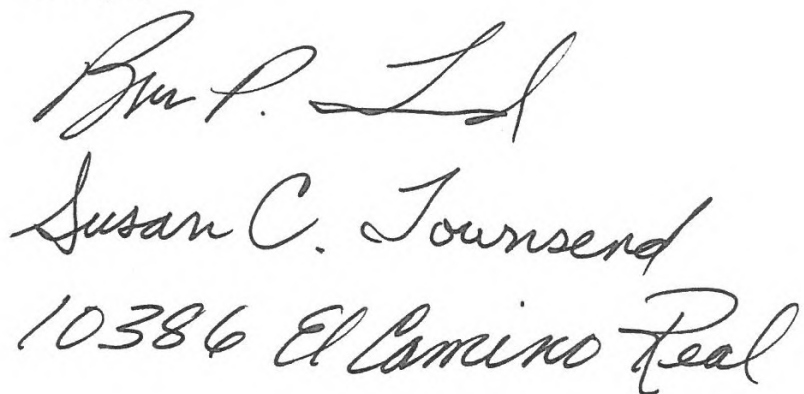 P.
Susan C. Townsend
10386 El Camino Real